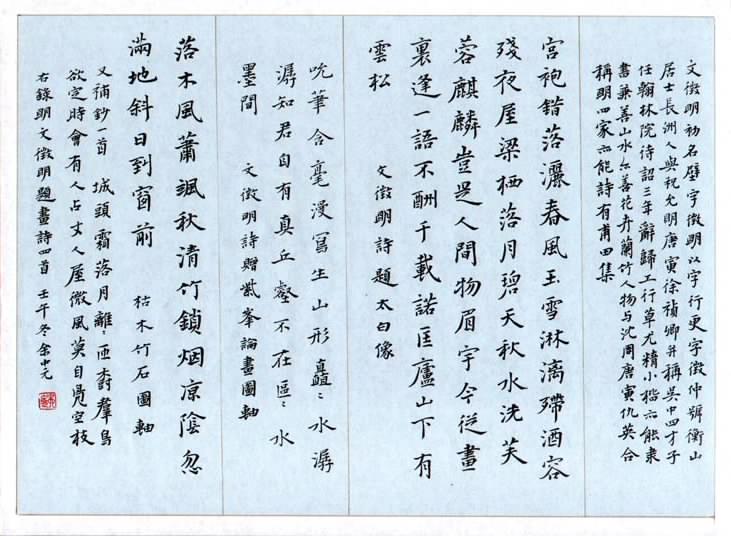 文徵明初名璧字徵明以字行更字徵仲號衡山
居士長洲人與祝允明唐寅徐禎卿并稱吳中四才子
任翰林院待詔三年辭歸工行草尤精小楷亦能隸
書兼善山水亦善花卉蘭竹人物与沈周唐寅仇英合
稱明四家亦能詩有甫田集
宮袍錯落灑春風玉雪淋漓殢酒容
殘夜屋梁栖落月碧天秋水洗芙
蓉麒麟豈是人間物眉宇今從畫
裏逢一語不酬千載諾匡廬山下有
雲松 文徵明詩題太白像
吮筆含毫漫寫生山形矗〻水潺
潺知君自有真丘壑不在區〻水
墨間 文徵明詩贈紫峯論畫圖軸
落木風蕭颯秋清竹鎖烟凉陰忽
滿地斜日到窗前 枯木竹石圖軸
又補鈔一首 城頭霜落月離〻匝樹羣烏
欲定時會有人占丈人屋微風莫自空枝
右錄明文徵明題畫詩四首 壬午冬余